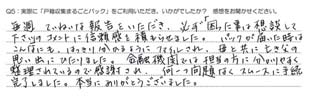 Q5:実際に「戸籍収集まるごとパック」をご利用いただき、いかがでしたか? 感想をお聞かせください。
毎週、ていねいな報告をいただき、必ず「困った事は相談して
下さい」のコメントに信頼感を積もらせました。パックが届いた時は
こんなにも、はっきり分かるようにファイルされ、母と共に亡き父の
思い出にひたりました。金融機関では担当の方に分かりやすく
整理されているのでと感謝され、何一つ問題なくスムーズに手続
完了しました。本当にありがとうございました。